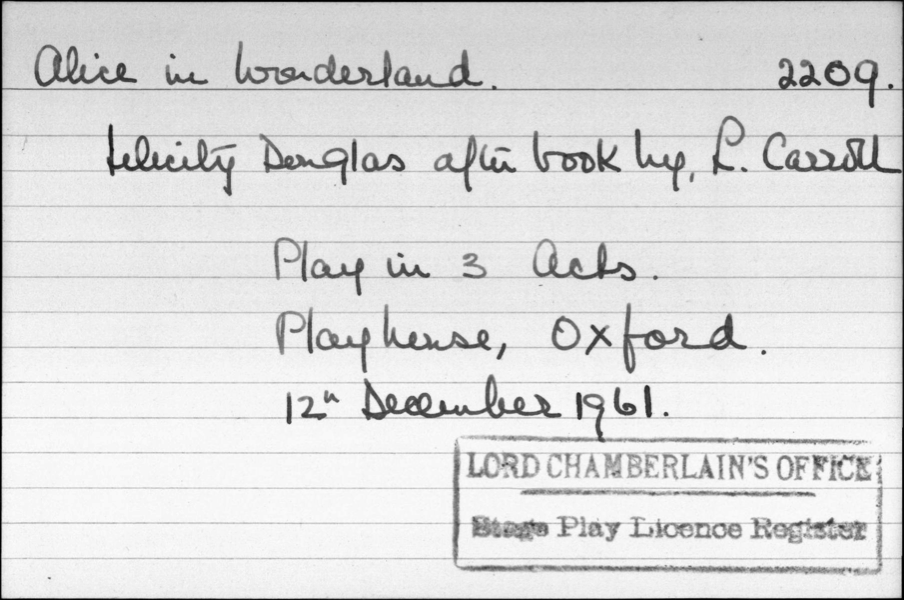 Alice in Wonderland. 2209.
Felicity Douglas after book by, L. Carroll
Play in 3 Acts.
Playhouse, Oxford.
12th December 1961.
LORD CHAMBERLAIN'S OFFICE
Stage Play Licence Register